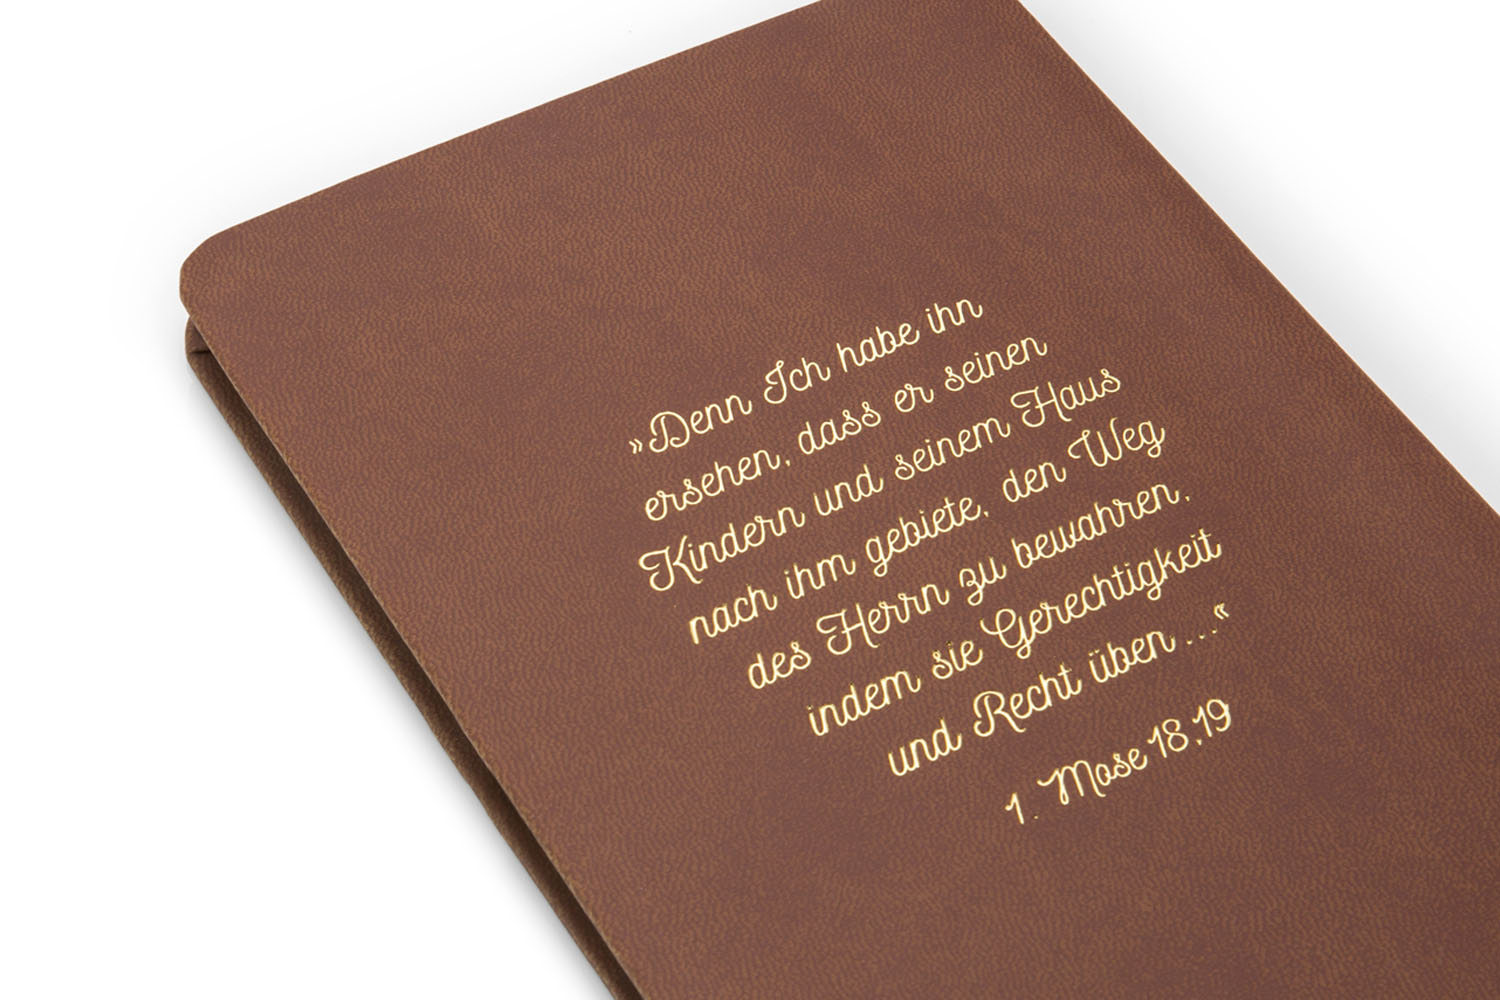 »Denn Ich habe ihn
ersehen, dass er seinen
Kindern und seinem Haus
nach ihm gebiete, den Weg
des Herrn zu bewahren,
indem sie Gerechtigkeit
und Recht üben ...«
1. Mose 18,19